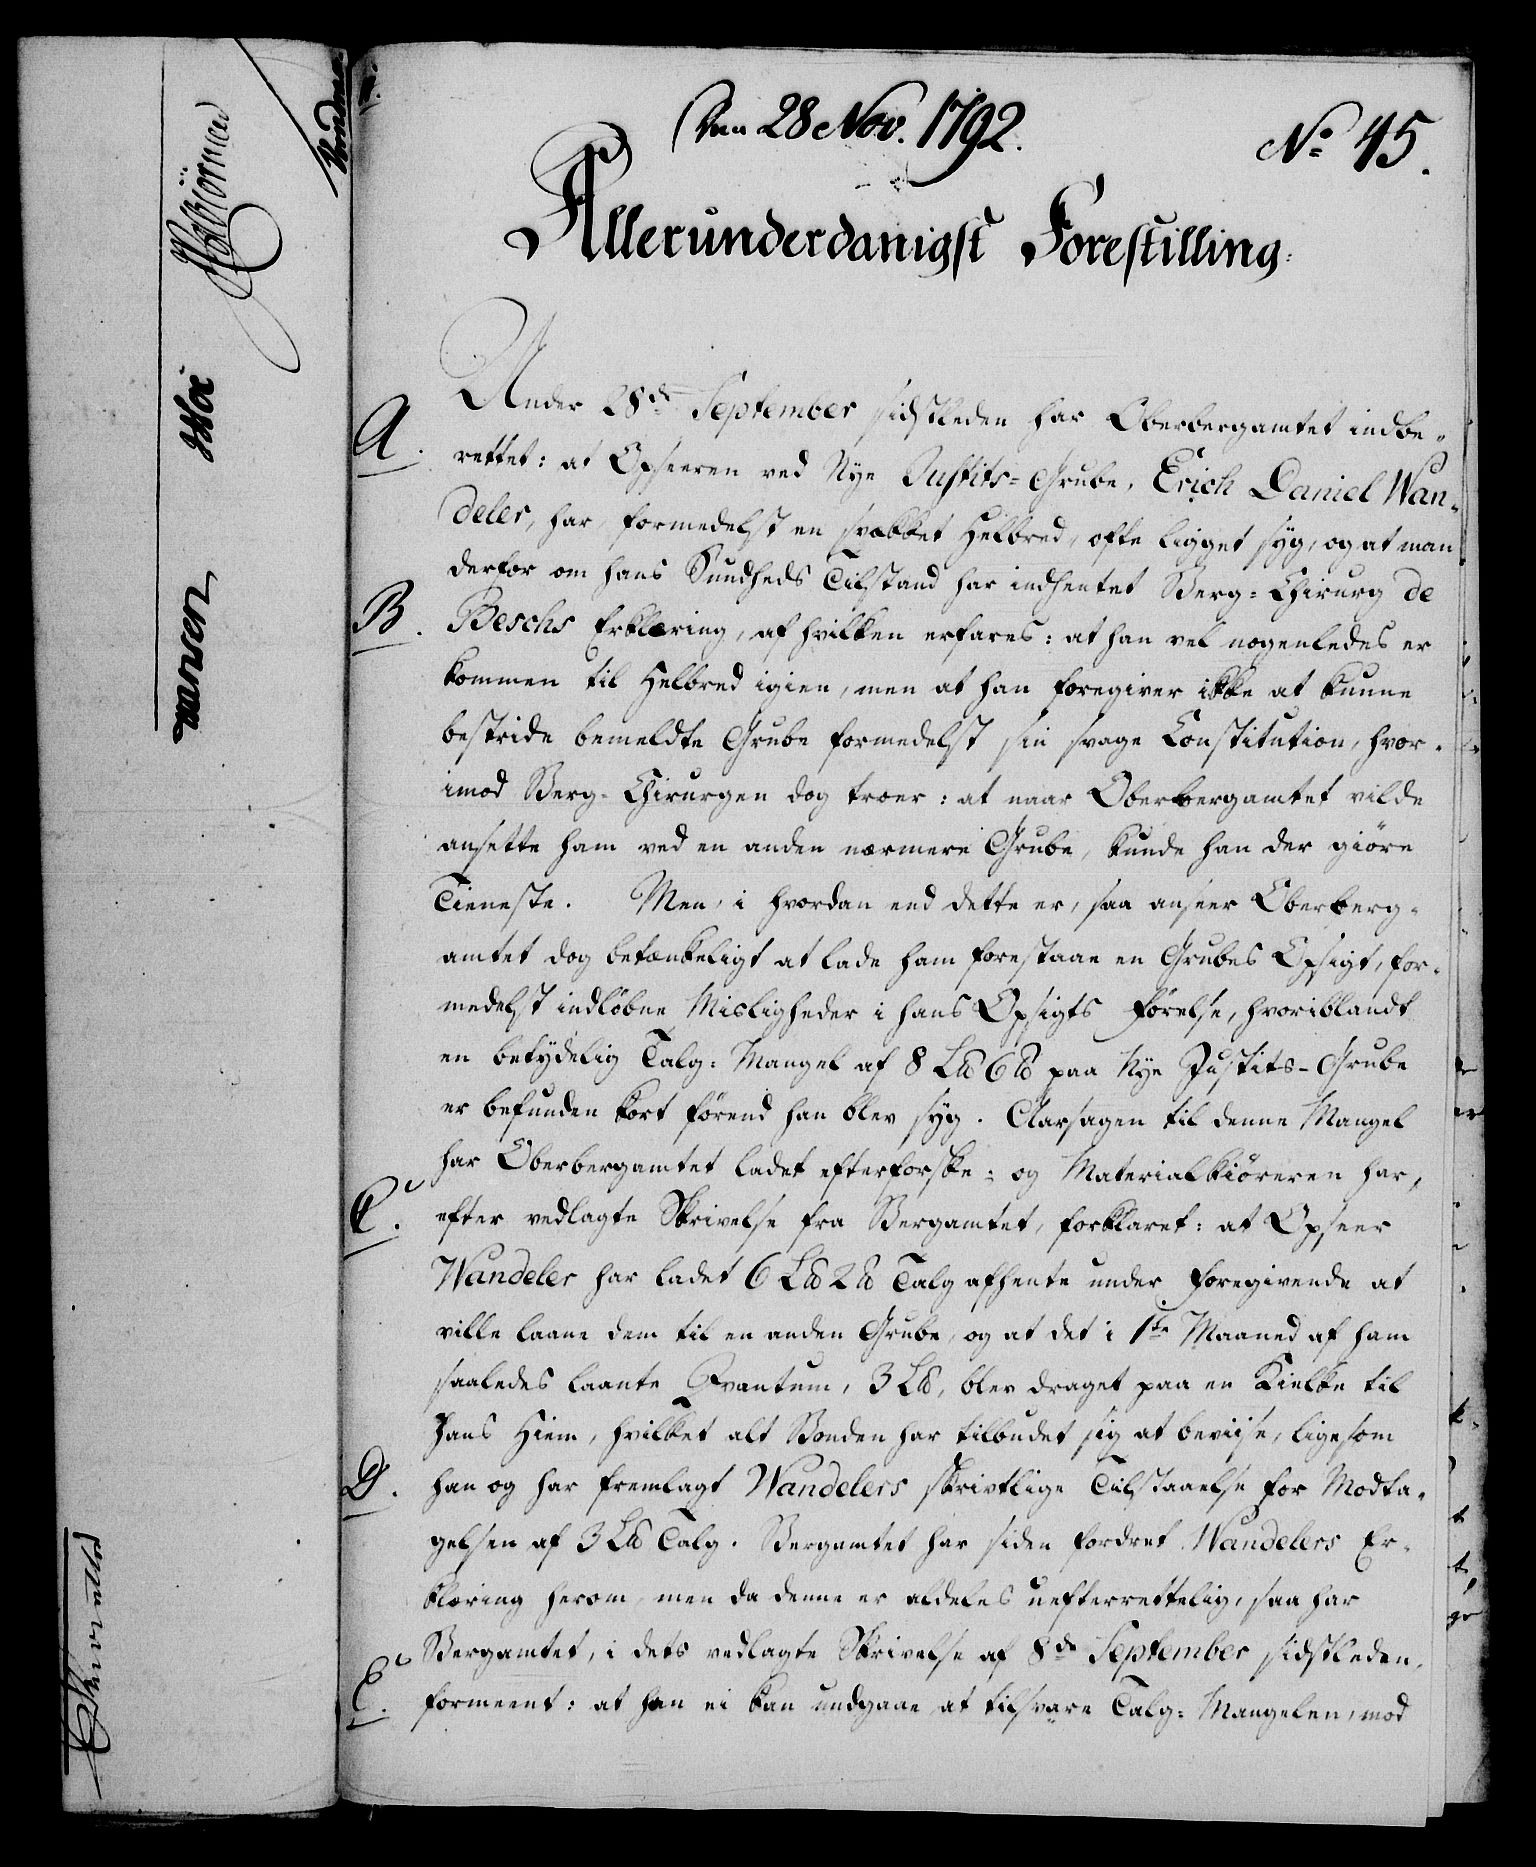 Den 28 Nov. 1792.
No 45.
Allerunderdanigst Forestilling.
Under 28de September sidstleden har Oberbergamtet indbe-
A.
rettet: at Opseeren ved Nye Justits-Grube, Erich Daniel Wan-
deler, har, formedelst en svækket Helbred, ofte ligget syg, og at man
derfor om hans Sundheds Tilstand har indhentet Berg-Chirurg de
B.
Beschs Erklæring, af hvilken erfares: at han vel nogenledes er
kommen til Helbred igien, men at han foregiver ikke at kunne
bestride bemeldte Grube formedelst sin svage Constitution, hvor-
imod Berg-Chirurgen dog troer: at naar Oberbergamtet vilde
ansette ham ved en anden nærmere Grube, kunde han der giöre
Tieneste. Men, i hvordan end dette er, saa anseer Oberberg-
amtet dog betænkeligt at lade ham forestaae en Grubes Opsigt, for-
medelst indløbne Misligheder i hans Opsigts Førelse, hvoriblandt
en betydelig Talg-Mangel af 8 L℔ 6 ℔ paa Nye Justits-Grube
er befunden kort førend han blev syg. Aarsagen til denne Mangel
har Oberbergamtet ladet efterforske; og Materialkiøreren har,
C.
efter vedlagte Skrivelse fra Bergamtet, forklaret: at Opseer
Wandeler har ladet 6 L℔ 2 ℔ Talg afhente under Foregivende at
ville laane dem til en anden Grube, og at det i 1te Maaned af ham
saaledes laante Qvantum, 3 L℔, blev draget paa en Kielke til
hans Hiem, hvilket alt Bonden har tilbudet sig at beviise, ligesom
D.
han og har fremlagt Wandelers skrivtlige Tilstaaelse for Modta-
gelsen af 3 L℔ Talg. Bergamtet har siden fordret Wandelers Er-
klæring herom, men da denne er aldeles uefterrettelig, saa har
Bergamtet, i dets vedlagte Skrivelse af 8de September sidstleden,
E.
formeent: at han ei kan undgaae at tilsvare Talg-Mangelen, mod